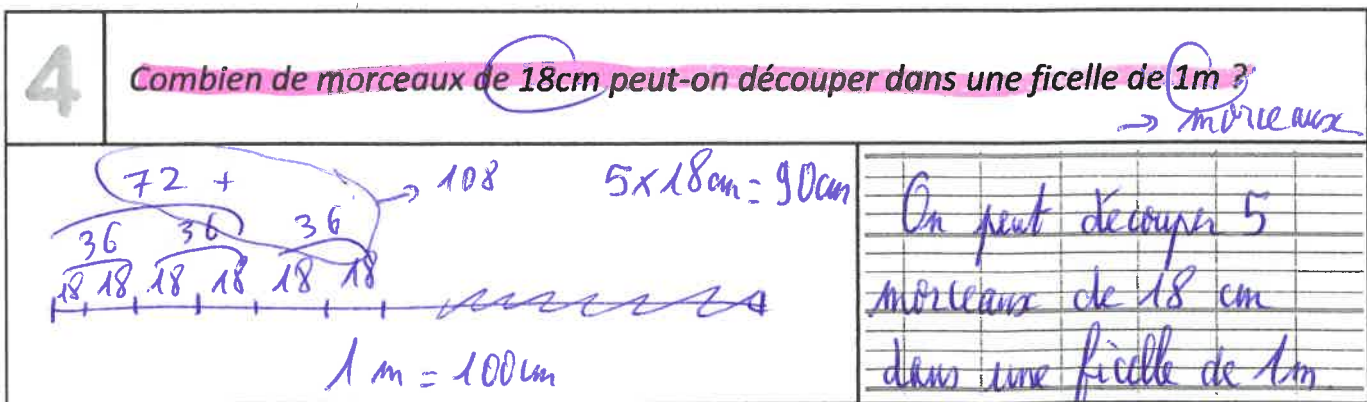 4
Combien de morceaux de 18cm peut-on découper dans une ficelle de 1m ?
→ morceaux
72 + → 108
5 x 18cm = 90cm
36 36 36
18 18 18 18 18 18
1 m = 100cm
On peut découper 5
morceaux de 18 cm
dans une ficelle de 1m